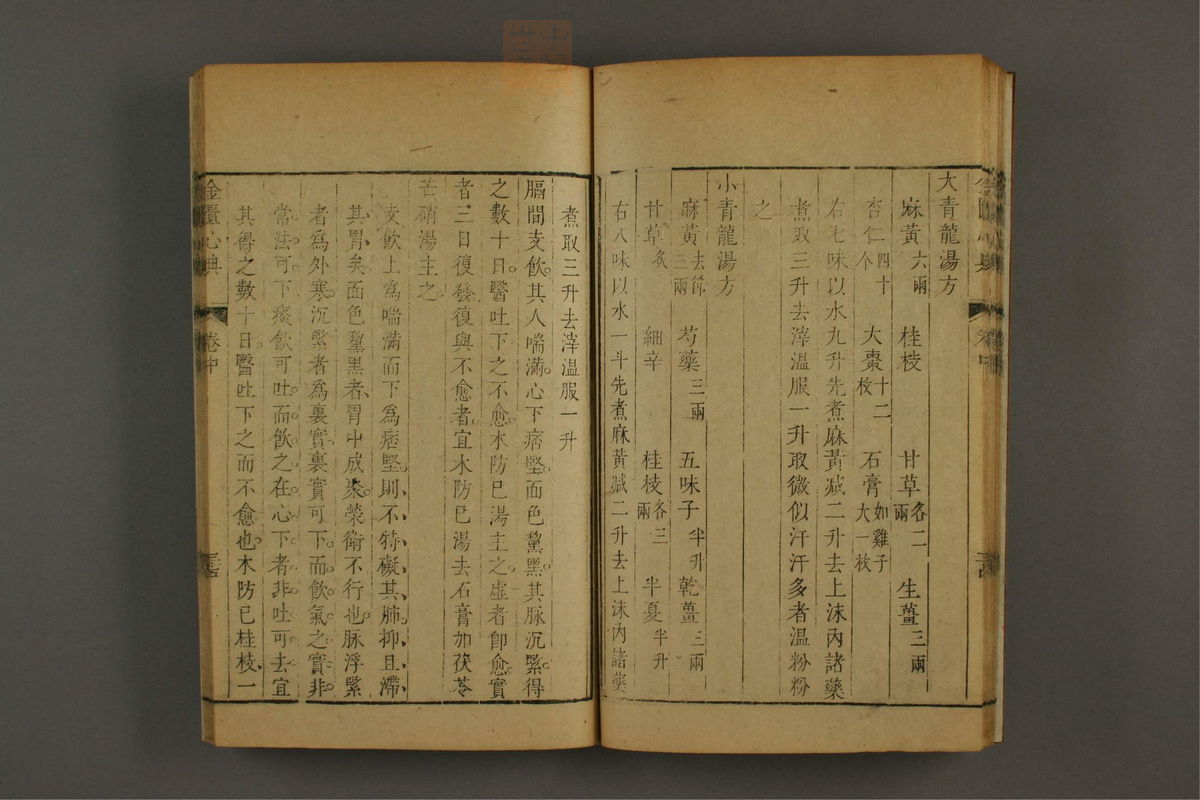 大青龍湯方
麻黃六兩 桂枝 甘草各二兩 生薑三兩
杏仁四十个 大棗十二枚 石膏如雞子大一枚
右七味以水九升先煮麻黃減二升去上沫內諸藥
煮取三升去滓溫服一升取微似汗汗多者溫粉粉
之
小青龍湯方
麻黃去節三兩 芍藥三兩 五味子半升 乾薑三兩
甘草炙 細辛 桂枝各三兩 半夏半升
右八味以水一斗先煮麻黃減二升去上沫內諸藥
煮取三升去滓溫服一升
膈間支飲其人喘滿心下痞堅面色黧黑其脈沉緊得
之數十日醫吐下之不愈木防已湯主之虛者卽愈實
者三日復發復與不愈者宜木防已湯去石膏加茯苓
芒硝湯主之
支飲上爲喘滿而下爲痞堅則不特礙其肺抑且滯
其胃矣面色黧黑者胃中成聚榮衛不行也脈浮緊
者爲外寒沉緊者爲裏實裏實可下而飲氣之實非
常法可下痰飲可吐而飲之在心下者非吐可去宜
其得之數十日醫吐下之而不愈也木防已桂枝一
金匱心典 卷中